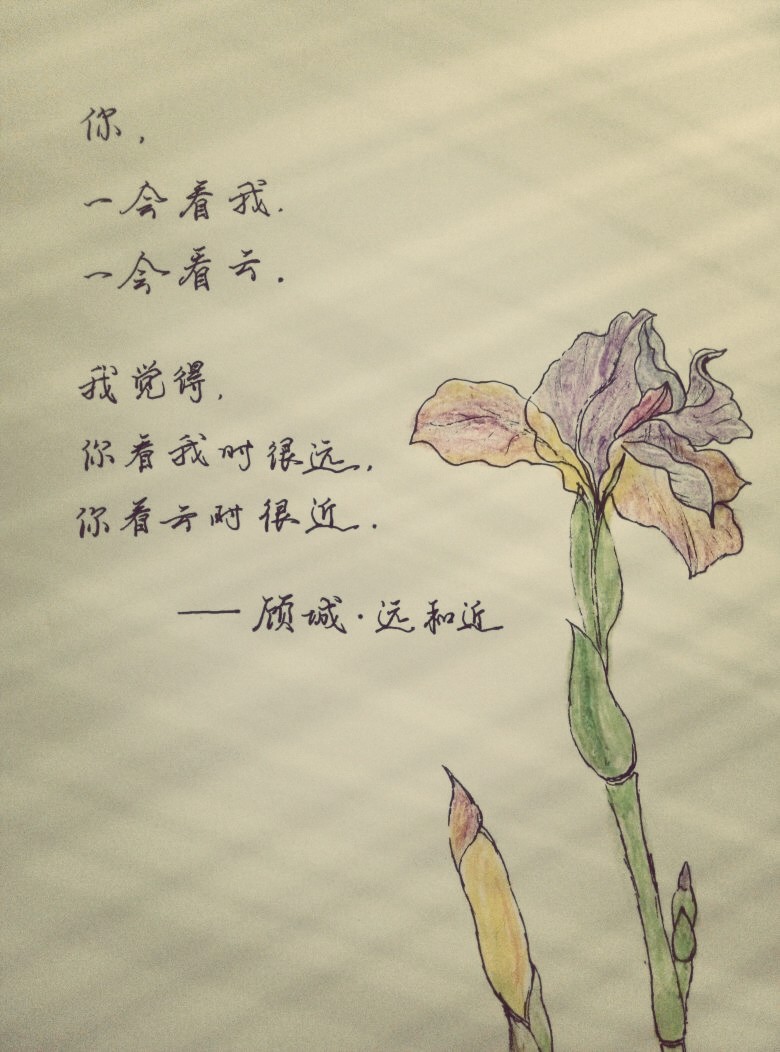 你，
一会看我.
一会看云.
我觉得，
你看我时很远，
你看云时很近.
——顾城·远和近